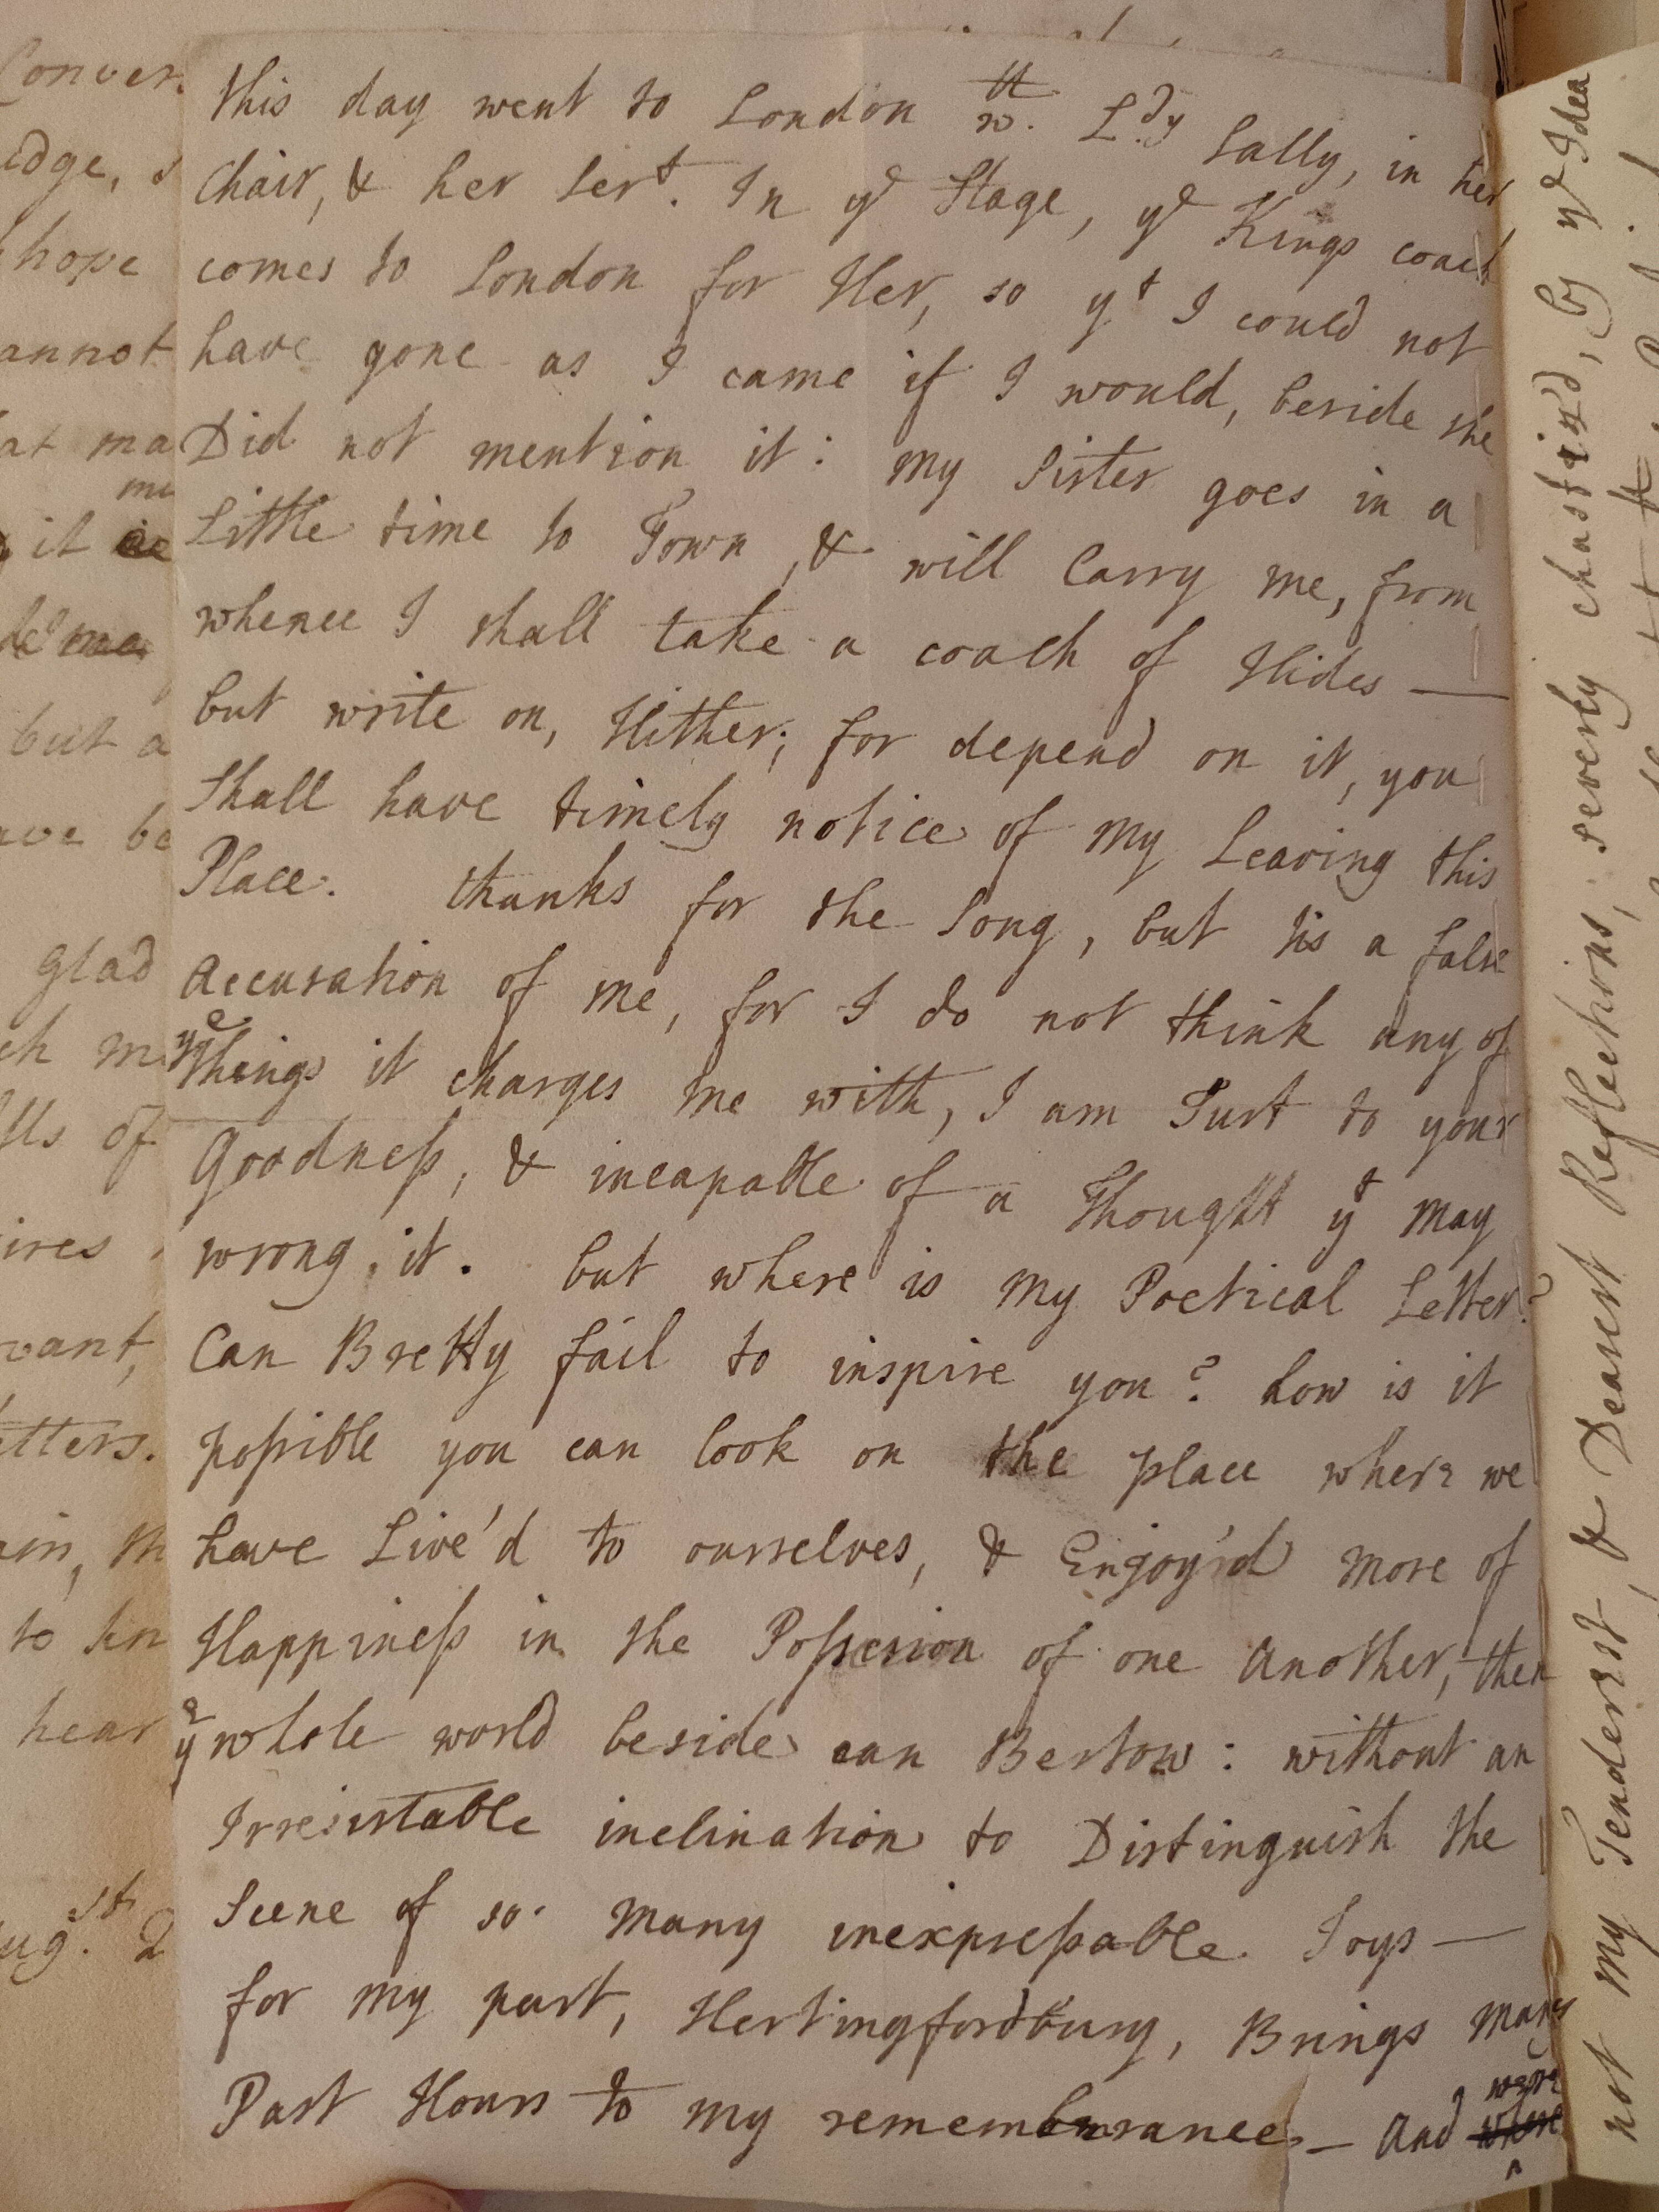 Conver
edge, s
hope
annot
at ma
me
it
but a
ave be
glad
ch m
lls of
ires
vant,
etters.
ain, th
to kn
hear
st
ug. 2
this day went to London wth. Ldy Sally, in her
Chair, & her Sert. In ye Stage, ye Kings coach
comes to London for Her, so yt I could not
have gone as I came if I would, beside she
Did not mention it: my Sister goes in a
Little time to Town, & will Carry me, from
whence I shall take a coach of Hides —
but write on, Hither; for depend on it, you
Shall have timely notice of my Leaving this
Place. thanks for the Song, but tis a false
accusation of me, for I do not think any of
ye things it charges me with, I am Just to your
Goodness, & incapable of a Thought yt may
wrong it. but where is my Poetical Letter?
Can Bretty fail to inspire you? how is it
possible you can look on the place where we
have Live'd to ourselves, & Enjoy'd more of
Happiness in the Possesion of one another, then
ye whole world beside can Bestow: without an
Irresistable inclination to Distinguish the
Scene of so many inexpressable Joys —
for my part, Hertingfordbury, Brings many
Past Hours to my remembrance — and were
where
not my Tenderest, & Dearest Reflections, severely chastiz'd, by ye Idea